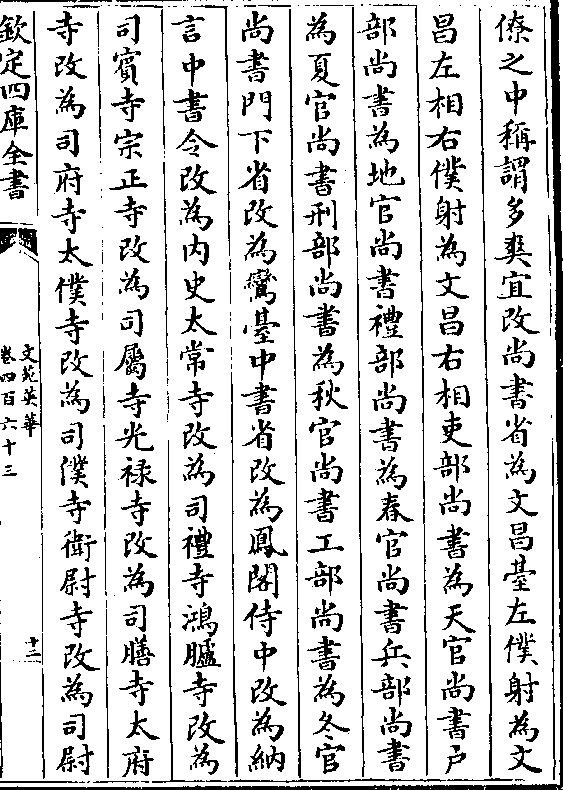 僚之中稱謂多爽宜改尚書省為文昌臺左僕射為文
昌左相右僕射為文昌右相吏部尚書為天官尚書户
部尚書為地官尚書禮部尚書為春官尚書兵部尚書
為夏官尚書刑部尚書為秋官尚書工部尚書為冬官
尚書門下省改為鸞臺中書省改為鳳閣侍中改為納
言中書令改為内史太常寺改為司禮寺鴻臚寺改為
司賓寺宗正寺改為司屬寺光禄寺改為司膳寺太府
寺改為司府寺太僕寺改為司僕寺衛尉寺改為司尉
欽定四庫全書
文苑英華
卷四百六十三
十二